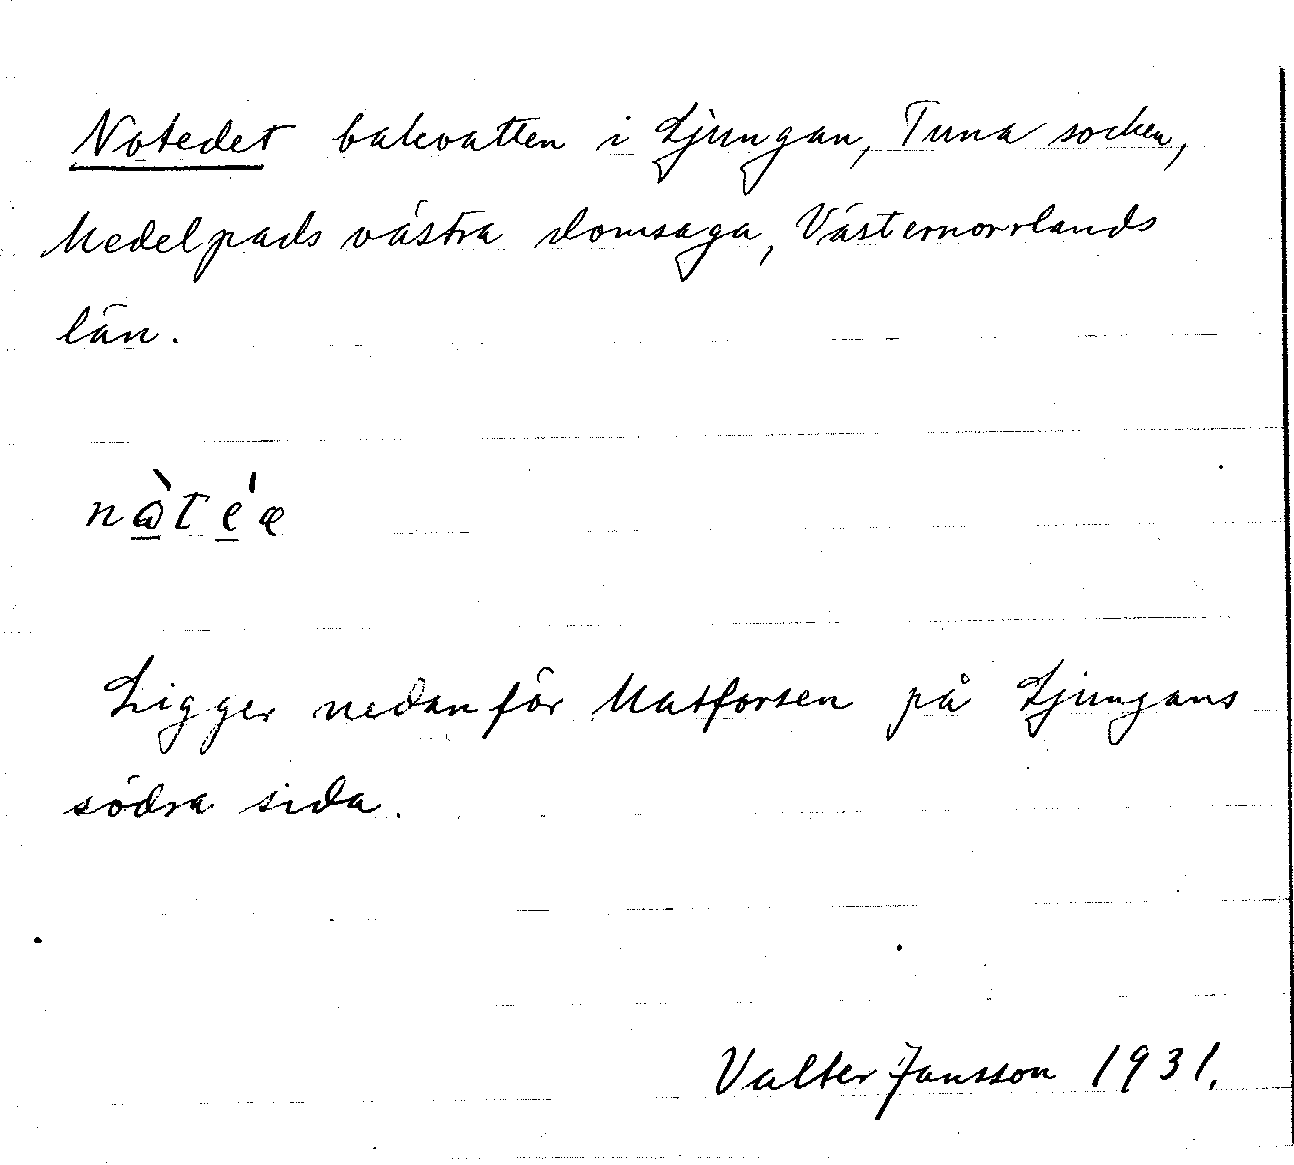 Notedet bakvatten i Ljungan, Tuna socken,
Medelpads västra domsaga, Västernorrlands
län.
Ligger nedanför Matforsen på Ljungans
södra sida.
Valter Jansson 1931.